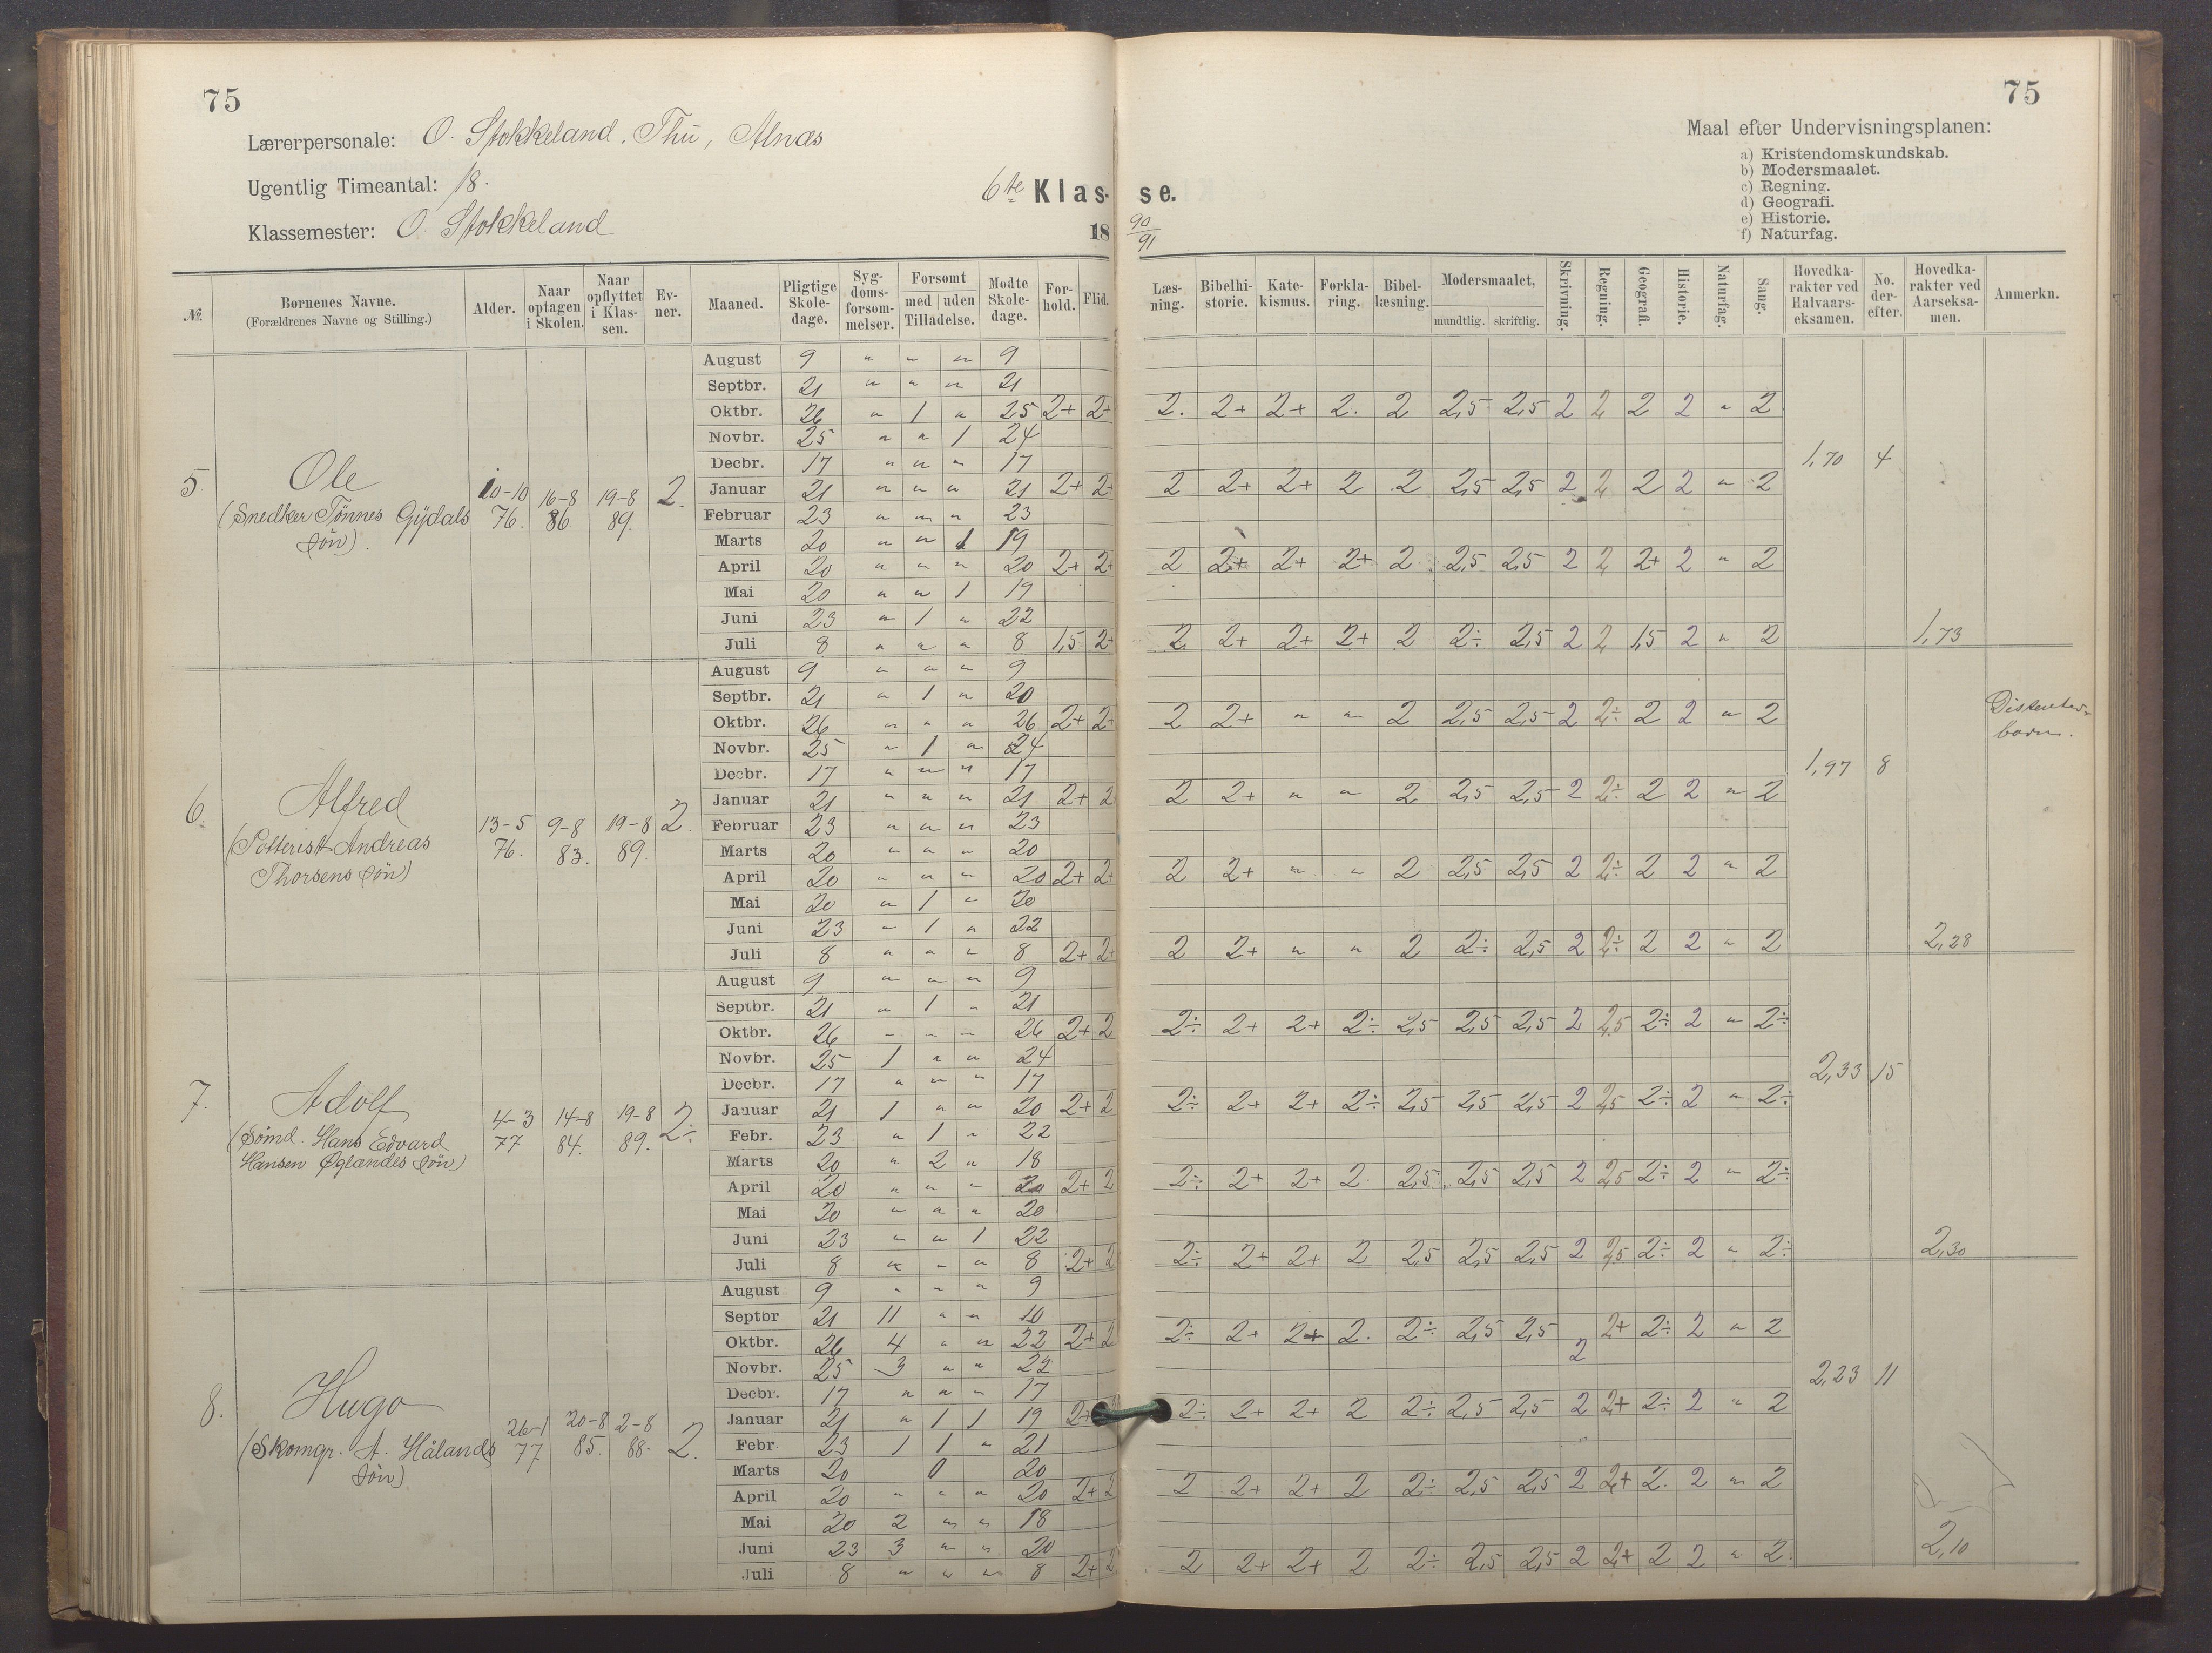 75
Lærerpersonale: O. Stokkeland. Thu, Alnæs
Ugentlig Timeantal: 18.
6te Klas-
Klassemester: O. Stokkeland
18
№ Børnenes Navne. (Forældrenes Navne og Stilling.) Alder. Naar optagen i Skolen. Naar opflyttet i Klassen. Evner. Maaned. Pligtige Skoledage. Sygdomsforsommelser. Forsømt med uden Tilladelse. Mødte Skoledage. Forhold. Flid.
August 9 " " " 9
Septbr. 21 " " " 21
Oktbr. 26 " 1 " 25 2+ 2+
Novbr. 25 " " 1 24
Decbr. 17 " " " 17
5. Ole 10-10 16-8 19-8 2. Januar 21 " " " 21 2+ 2+
(Snedker Tønnes Gydals 76. 86. 89. Februar 23 " " " 23
søn). Marts 20 " " 1 19
April 20 " " " 20 2+ 2+
Mai 20 " " 1 19
Juni 23 " 1 " 22
Juli 8 " " " 8 1,5 2+
August 9 " " " 9
Septbr. 21 " 1 " 20
Oktbr. 26 " " " 26 2+ 2+
Novbr. 25 " 1 " 24
Decbr. 17 " " " 17
6. Alfred Januar 21 " " " 21 2+ 2
13-5 9-8 19-8 2. Februar 23 " " " 23
(Potterist Andreas 76. 83. 89. Marts 20 " " " 20
Thorsens søn) April 20 " " " 20 2+ 2+
Mai 20 " 1 " 20
Juni 23 " 1 " 22
Juli 8 " " " 8 2+ 2+
August 9 " " " 9
Septbr. 21 " 1 " 21
Oktbr. 26 " " " 26 2+ 2
Novbr. 25 1 " " 24
Decbr. 17 " " " 17
7. Adolf 4-3 14-8 19-8 2÷ Januar 21 1 " " 20 2+ 2
(Sømd. Hans Edvard 77 84. 89. Febr. 23 " 1 " 22
Hansen Øglændes søn) Marts 20 " 2 " 18
April 20 " " " 20 2+ 2
Mai 20 " " " 20
Juni 23 " " 1 22
Juli 8 " " " 8 2+ 2
August 9 " " " 9
Septbr 21 11 " " 10
Oktbr. 26 4 " " 22 2+ 2
Novbr. 25 3 " " 22
Decbr. 17 " " " 17
8. Hugo 26-1 20-8 2-8 Januar 21 " 1 1 19 2+
(Skomgr. A. Hålands 77 85. 88. 2. Febr. 23 1 1 " 21
søn) Marts 20 0 20
April 20 " " " 20 2+ 2
Mai 20 2 " " 18
Juni 23 3 " " 20
Juli 8 " " " 8 2+ 2
75
Maal efter Undervisningsplanen:
a) Kristendomskundskab.
b) Modersmaalet.
c) Regning.
d) Geografi.
e) Historie.
f) Naturfag.
se.
90
91
Læsning. Bibelhistorie. Katekismus. Forklaring. Bibellæsning. Modersmaalet, mundtlig. skriftlig. Skrivning. Regning. Geografi. Historie. Naturfag. Sang. Hovedkarakter ved Halvaarseksamen. No. derefter. Hovedkarakter ved Aarseksamen. Anmerkn.
2. 2+ 2+ 2. 2 2,5 2,5 2 2 2 2 " 2
1,70 4
2 2+ 2+ 2 2 2,5 2,5 2 2 2 2 " 2
2 2+ 2+ 2+ 2 2,5 2,5 2 2 2+ 2 " 2
2 2+ 2+ 2+ 2 2÷ 2,5 2 2 1,5 2 " 2 1,73
2 2+ " " 2 2,5 2,5 2 2÷ 2 2 " 2 Dissenter-
barn.
1,97 8
2 2+ " " 2 2,5 2,5 2 2÷ 2 2 " 2
2 2+ " " 2 2,5 2,5 2 2÷ 2 2 " 2
2 2+ " " 2 2÷ 2,5 2 2÷ 2 2 " 2 2,28
2÷ 2+ 2+ 2÷ 2,5 2,5 2,5 2 2,5 2÷ 2 " 2÷
2,33 15
2÷ 2+ 2+ 2÷ 2,5 2,5 2,5 2 2,5 2÷ 2 " 2÷
2÷ 2+ 2+ 2. 2,5 2,5 2,5 2 2,5 2÷ 2 " 2÷
2÷ 2+ 2+ 2 2,5 2,5 2,5 2 2,5 2÷ 2 " 2÷ 2,30
2÷ 2+ 2+ 2. 2÷ 2,5 2,5 2 2+ 2÷ 2 " 2
2,23 11
2÷ 2+ 2+ 2 2÷ 2,5 2,5 2 2+ 2÷ 2 " 2
2 2+ 2+ 2 2÷ 2,5 2,5 2 2+ 2. 2 " 2
2 2+ 2+ 2 2÷ 2,5 2,5 2 2+ 2 2 " 2 2,10